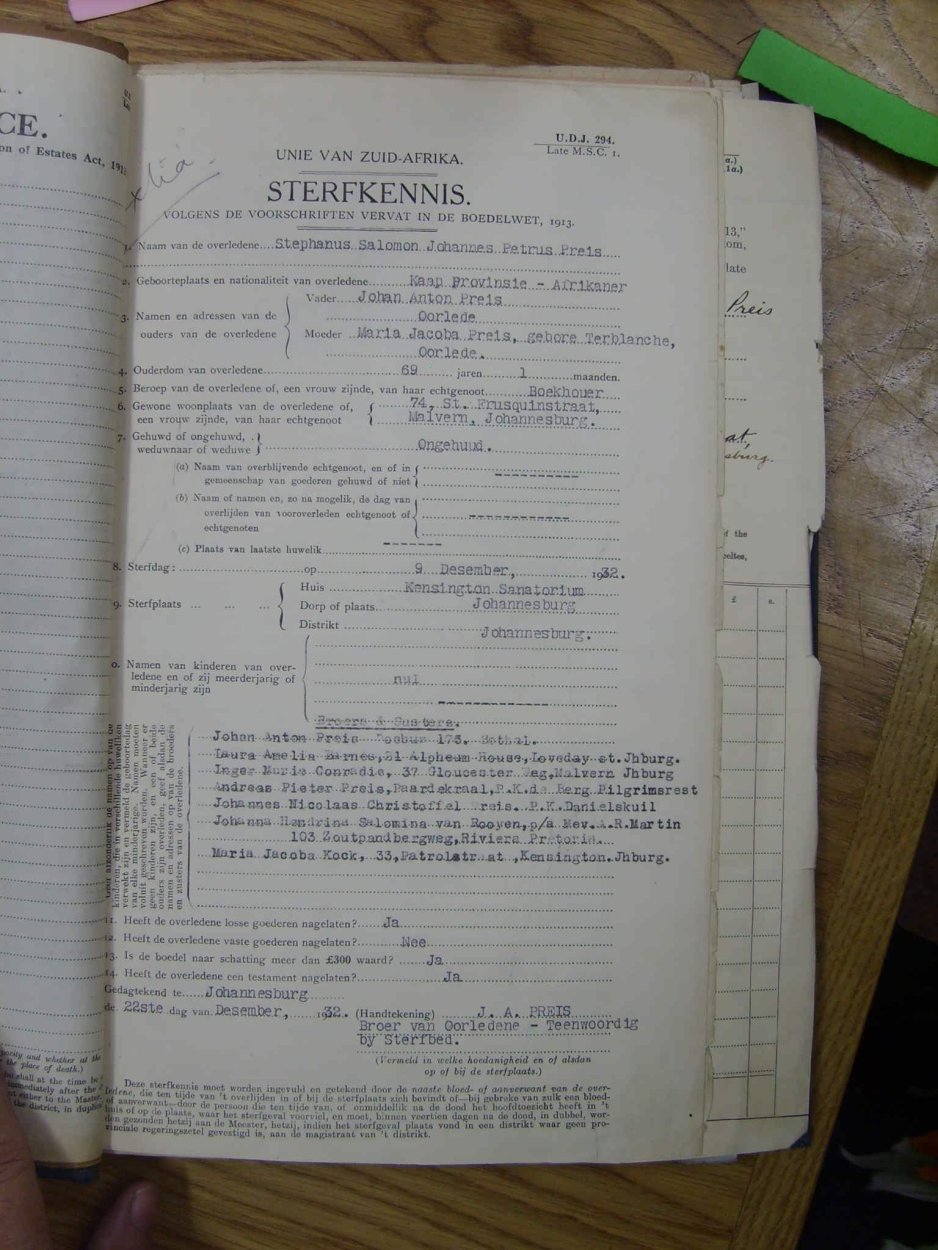 CE.
on of Estates Act, 191
U.D.J. 294.
Late M.S.C. 1.
UNIE VAN ZUID-AFRIKA.
STERFKENNIS.
VOLGENS DE VOORSCHRIFTEN VERVAT IN DE BOEDELWET, 1913.
1. Naam van de overledene....Stephanus Salomon Johannes Petrus Preis
2. Geboorteplaats en nationaliteit van overledene Kaap Provinsie - Afrikaner
Vader Johan Anton Preis
3. Namen en adressen van de Oorlede
ouders van de overledene Moeder Maria Jacoba Preis, gebore Terblanche,
Oorlede.
4. Ouderdom van overledene 69 jaren 1 maanden.
5. Beroep van de overledene of, een vrouw zijnde, van haar echtgenoot Boekhouer
6. Gewone woonplaats van de overledene of, 74, St. Frusquinstraat,
een vrouw zijnde, van haar echtgenoot Malvern, Johannesburg.
7. Gehuwd of ongehuwd,
weduwnaar of weduwe Ongehuud.
(a) Naam van overblijvende echtgenoot, en of in
gemeenschap van goederen gehuwd of niet
(b) Naam of namen en, zo na mogelik, de dag van
overlijden van vooroverleden echtgenoot of
echtgenoten
(c) Plaats van laatste huwelik
8. Sterfdag: op 9 Desember, 1932.
Huis Kensington Sanatorium
9. Sterfplaats ... ... ... Dorp of plaats Johannesburg
Distrikt Johannesburg.
0. Namen van kinderen van over-
ledene en of zij meerderjarig of nul
minderjarig zijn
Broers & Susters.
Johan Anton Preis Posbus 173. Bethal.
Laura Amelia Barnes, 21 Alpheum House, Loveday st. Jhburg.
Inger Marie Conradie, 37 Gloucester Weg, Malvern Jhburg
Andreas Pieter Preis, Paardekraal, P.K. de Berg Pilgrimsrest
Johannes Nicolaas Christoffel Preis. P.K. Danielskuil
Johanna Hendrina Salomina van Rooyen, p/a Mev. A.R. Martin
103 Zoutpandbergweg, Riviera Pretoria.
Maria Jacoba Kock, 33, Patrolstraat, Kensington. Jhburg.
kinderen, die in verschillende huweliken
verwekt zijn en vermeld de geboortedag
van elke minderjarige. Namen moeten
voluit geschreven worden. Wanneer er
geen kinderen zijn, en een of beide
ouders zijn overleden, geef alsdan de
namen en adressen op van de broeders
en zusters van de overledene.
11. Heeft de overledene losse goederen nagelaten? Ja
12. Heeft de overledene vaste goederen nagelaten? Nee
13. Is de boedel naar schatting meer dan £300 waard? Ja
14. Heeft de overledene een testament nagelaten? Ja
Gedagtekend te Johannesburg
de 22ste dag van Desember, 1932. (Handtekening) J. A. PREIS
Broer van Oorledene - Teenwoordig
by Sterfbed.
(Vermeld in welke hoedanigheid en of alsdan
op of bij de sterfplaats.)
Deze sterfkennis moet worden ingevuld en getekend door de naaste bloed- of aanverwant van de over-
ledene, die ten tijde van 't overlijden in of bij de sterfplaats zich bevindt of—bij gebreke van zulk een bloed-
of aanverwant—door de persoon die ten tijde van, of onmiddellik na de dood het hoofdtoezicht heeft in 't
huis of op de plaats, waar het sterfgeval voorviel, en moet, binnen veertien dagen na de dood, in dubbel, wor-
den gezonden hetzij aan de Meester, hetzij, indien het sterfgeval plaats vond in een distrikt waar geen pro-
vinciale regeringszetel gevestigd is, aan de magistraat van 't distrikt.
pacity and whether at the
the place of death.)
shall at the time be
immediately after the
either to the Master,
the district, in duplic
a.)
1a.)
13,"
om,
late
Preis
at,
sburg.
f the
£ s.